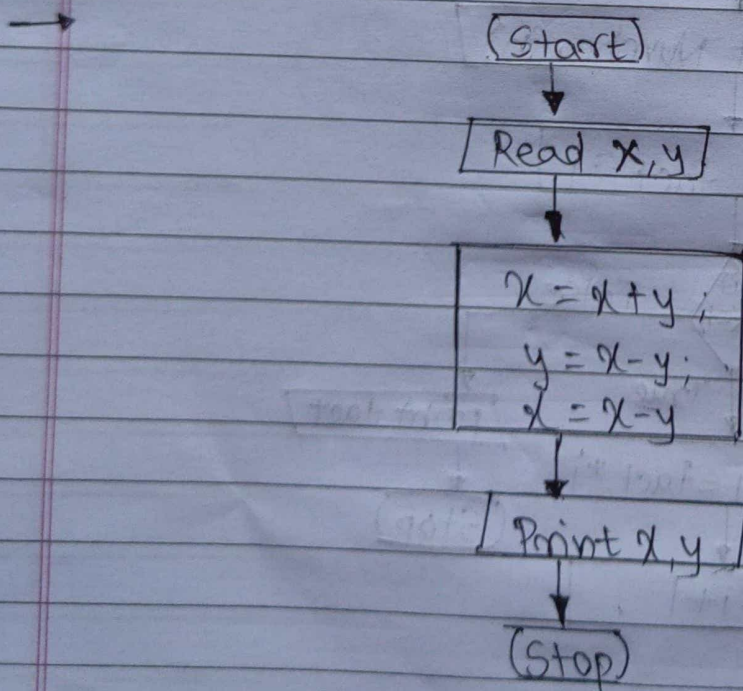 Start
Read x, y
x = x + y ;
y = x - y ;
x = x - y
Print x, y
Stop